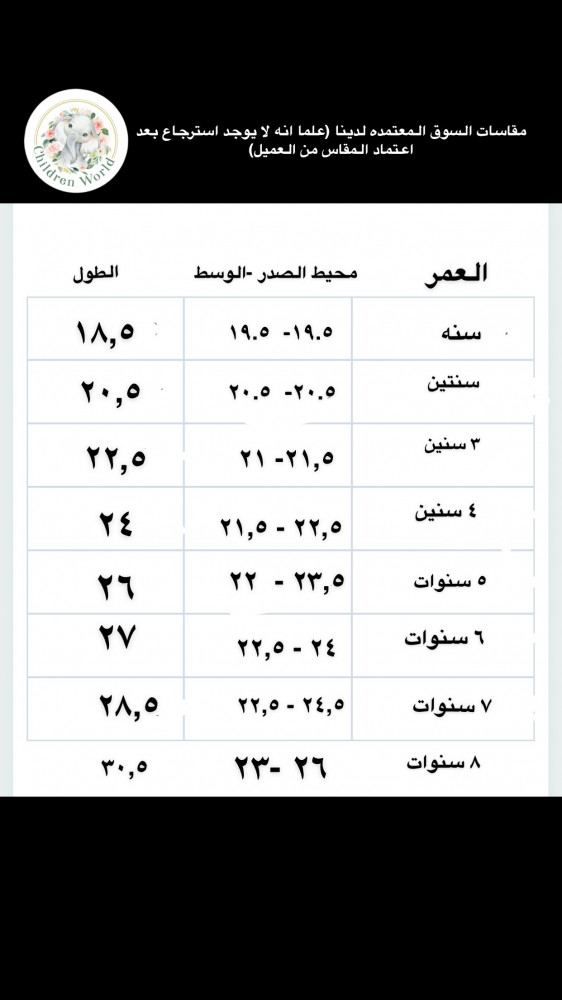 مقاسات السوق المعتمده لدينا (علما انه لا يوجد استرجاع بعد
اعتماد المقاس من العميل)
Children World
العمر محيط الصدر -الوسط الطول
سنه ١٩.٥- ١٩.٥ ١٨,٥
سنتين ٢٠.٥- ٢٠.٥ ٢٠,٥
٣ سنين ٢١,٥- ٢١ ٢٢,٥
٤ سنين ٢٢,٥ - ٢١,٥ ٢٤
٥ سنوات ٢٣,٥ - ٢٢ ٢٦
٦ سنوات ٢٤ - ٢٢,٥ ٢٧
٧ سنوات ٢٤,٥ - ٢٢,٥ ٢٨,٥
٨ سنوات ٢٦ -٢٣ ٣٠,٥